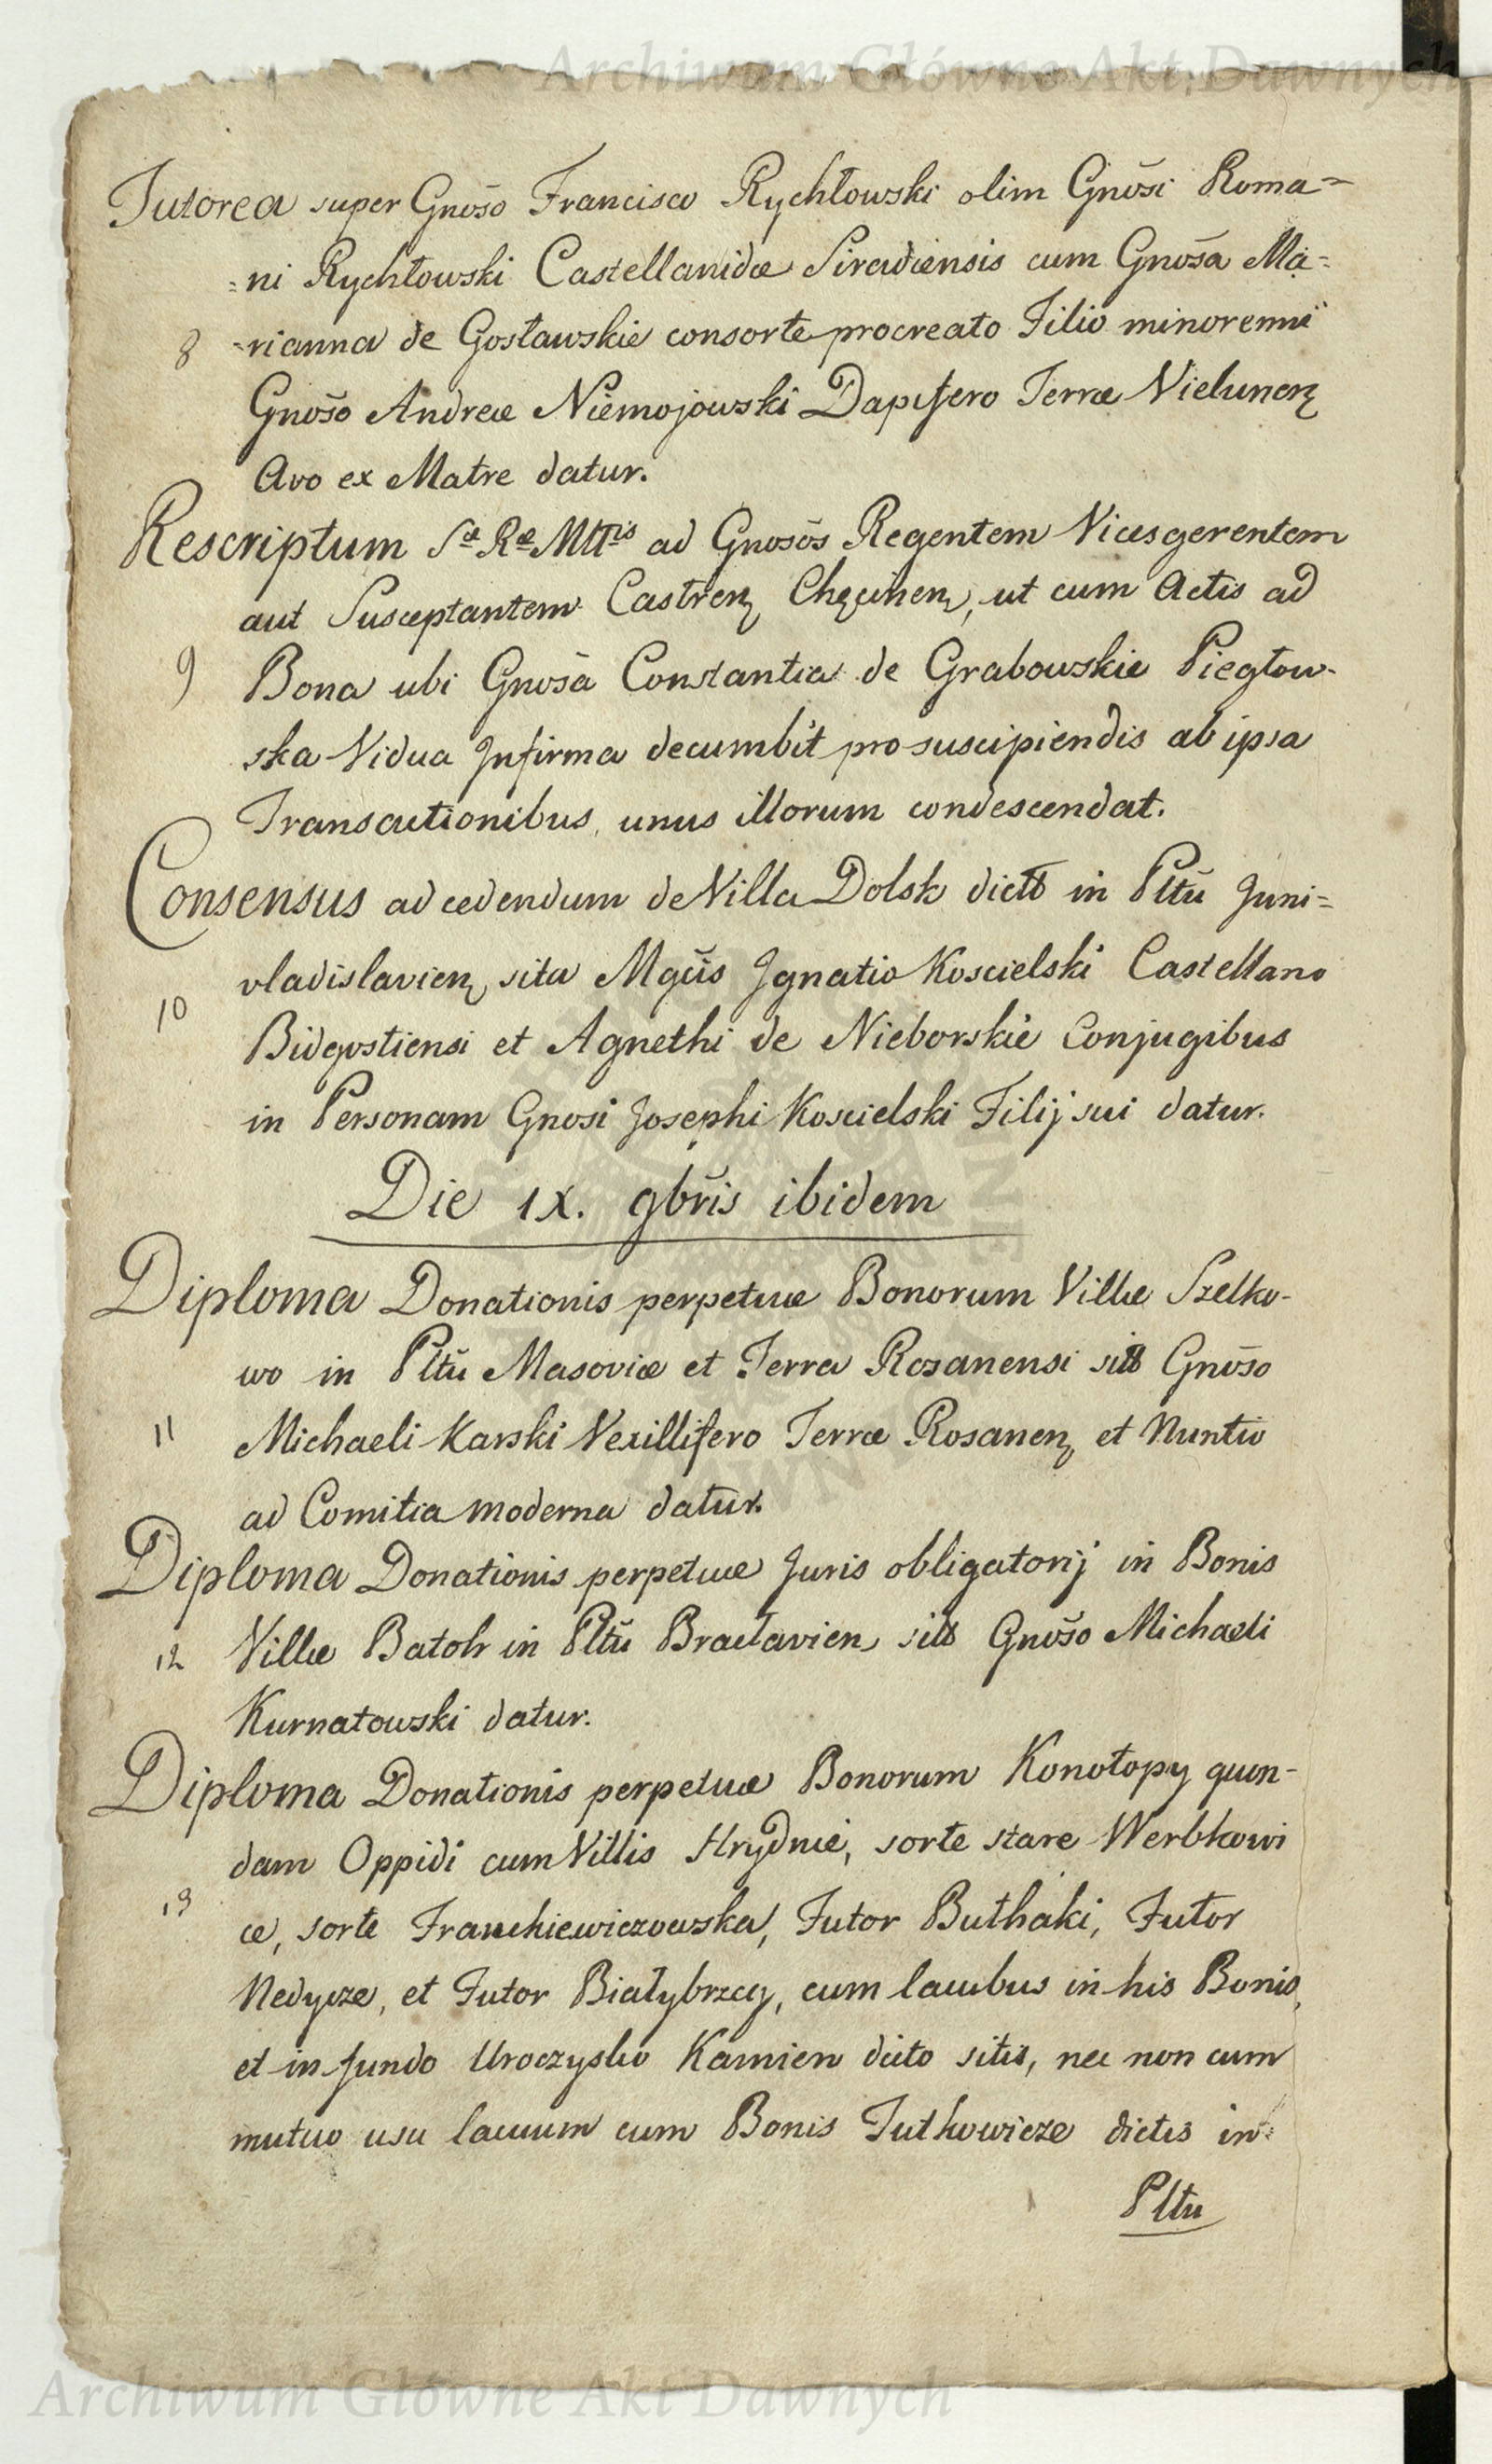 Archiwum Główne Akt Dawnych
Tutorea super Gnōso Francisco Rychłowski olim Gnōsi Roma=
=ni Rychłowski Castellanidæ Siradiensis cum Gnōsa Ma=
8 -rianna de Gosławskie consorte procreato Filio minorenni
Gnōso Andreæ Niemojowski Dapifero Terræ Vielunen
Avo ex Matre datur.
Rescriptum Sæ Ræ Mttis ad Gnosōs Regentem Vicesgerentem
aut Susceptantem Castren Chęcinen, ut cum Actis ad
9 Bona ubi Gnosā Constantia de Grabowskie Piegłow-
ska Vidua Infirma decumbit pro suscipiendis ab ipsa
Transactionibus, unus illorum condescendat.
Consensus ad cedendum de Villa Dolsk dicta in Pltū Juni=
vladislavien sita Mgcīs Ignatio Koscielski Castellano
10 Bidgostiensi et Agnethi de Nieborskie Conjugibus
in Personam Gnosi Josephi Koscielski Filij sui datur.
Die IX. 9brīs ibidem
Diploma Donationis perpetuæ Bonorum Villæ Szelko-
wo in Pltū Masoviæ et Terra Rosanensi sitt Gnōso
11 Michaeli Karski Vexillifero Terræ Rosanen et Nuntio
ad Comitia moderna datur.
Diploma Donationis perpetuæ Juris obligatorij in Bonis
12 Villæ Batoh in Pltū Bracłavien sitt Gnōso Michaeli
Kurnatowski datur.
Diploma Donationis perpetuæ Bonorum Konotopy quon-
dam Oppidi cum Villis Hrydnie, sorte stare Werbkowi
13 ce, sorte Franckiewiczowska, Futor Buthaki, Futor
Nedycze, et Futor Białybrzeg, cum lacubus in his Bonis,
et in fundo Uroczysko Kamien dicto sitis, nec non cum
mutuo usu lacuum cum Bonis Jutkowicze dictis in
Pltu
Archiwum Główne Akt Dawnych